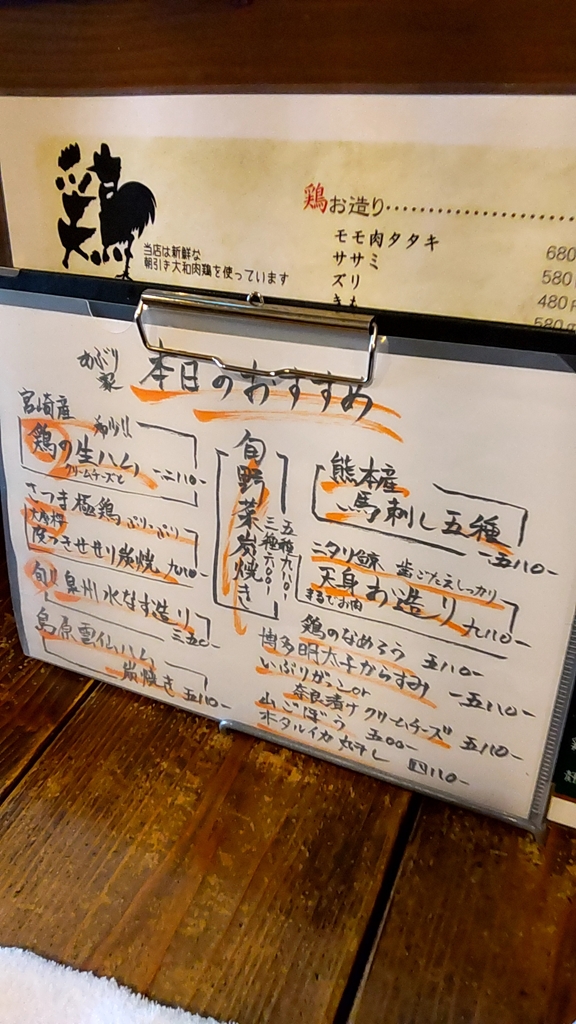 鶏
当店は新鮮な
朝引き大和肉鶏を使っています
鶏お造り
モモ肉タタキ 680
ササミ 580
ズリ 480円
きも 580
あぶり
家
本日のおすすめ
宮崎産
鶏の生ハム
クリームチーズと
さつま極鶏 ぷりっぷり
大摩桜
皮つきせせり炭焼 九八〇-
旬 泉州水なす造り
三五〇-
島原雲仙ハム
炭焼き 五八〇-
旬野菜炭焼き
五種九八〇-
三種六〇〇-
熊本産
馬刺し五種
一五八〇-
ニタリ鯨 歯ごたえしっかり
天身お造り
まるでお肉
九八〇-
鶏のなめろう 五八〇-
博多明太子からすみ 一五八〇-
いぶりがっこor
奈良漬け クリームチーズ 五八〇-
山ごぼう 五〇〇-
ホタルイカ丸干し 四八〇-